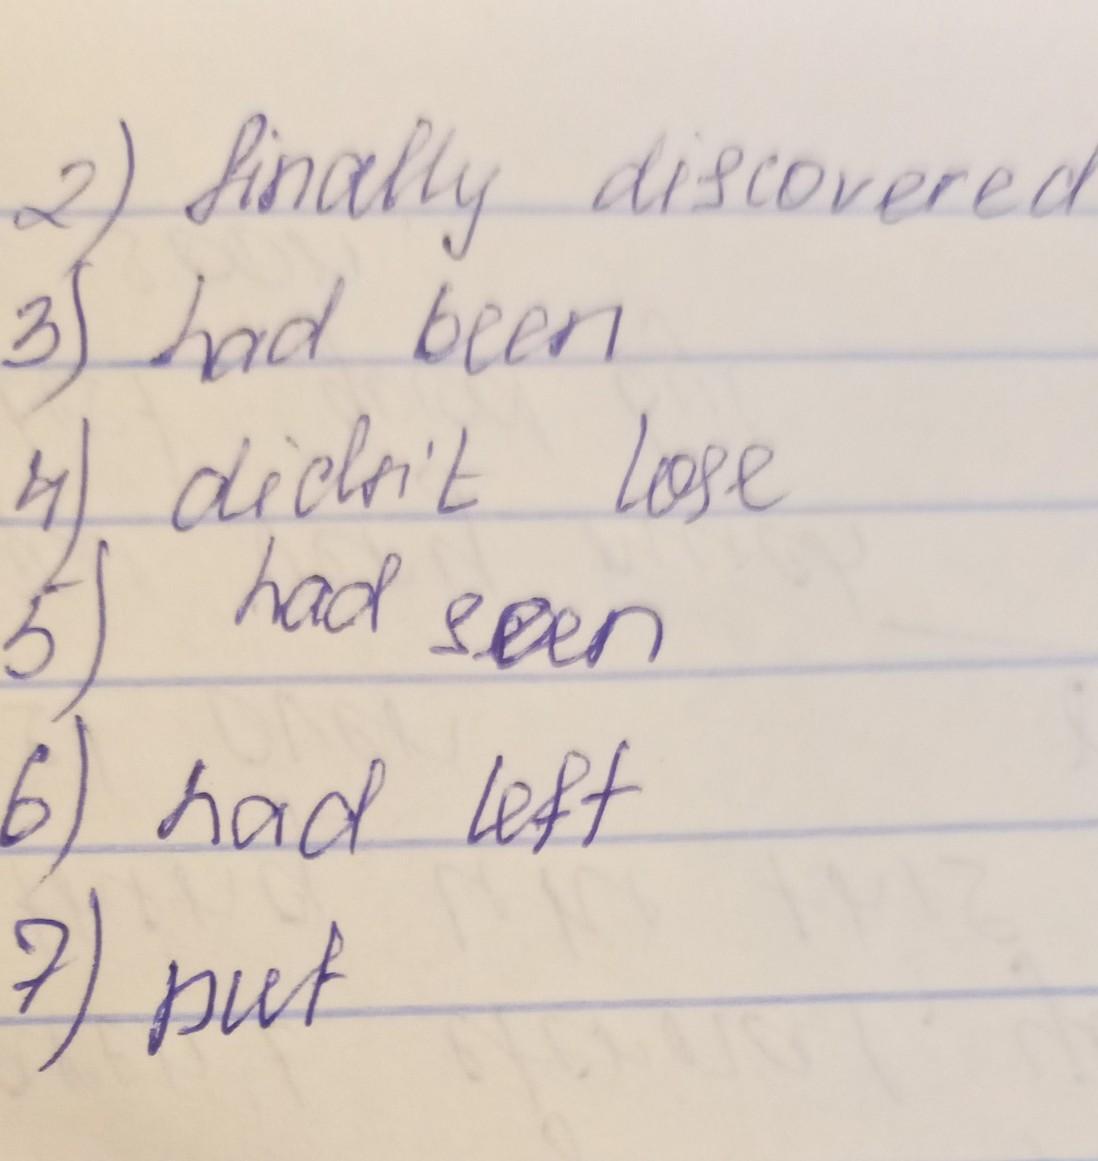 2) finally discovered
3) had been
4) didn't lose
5) had seen
6) had left
7) put